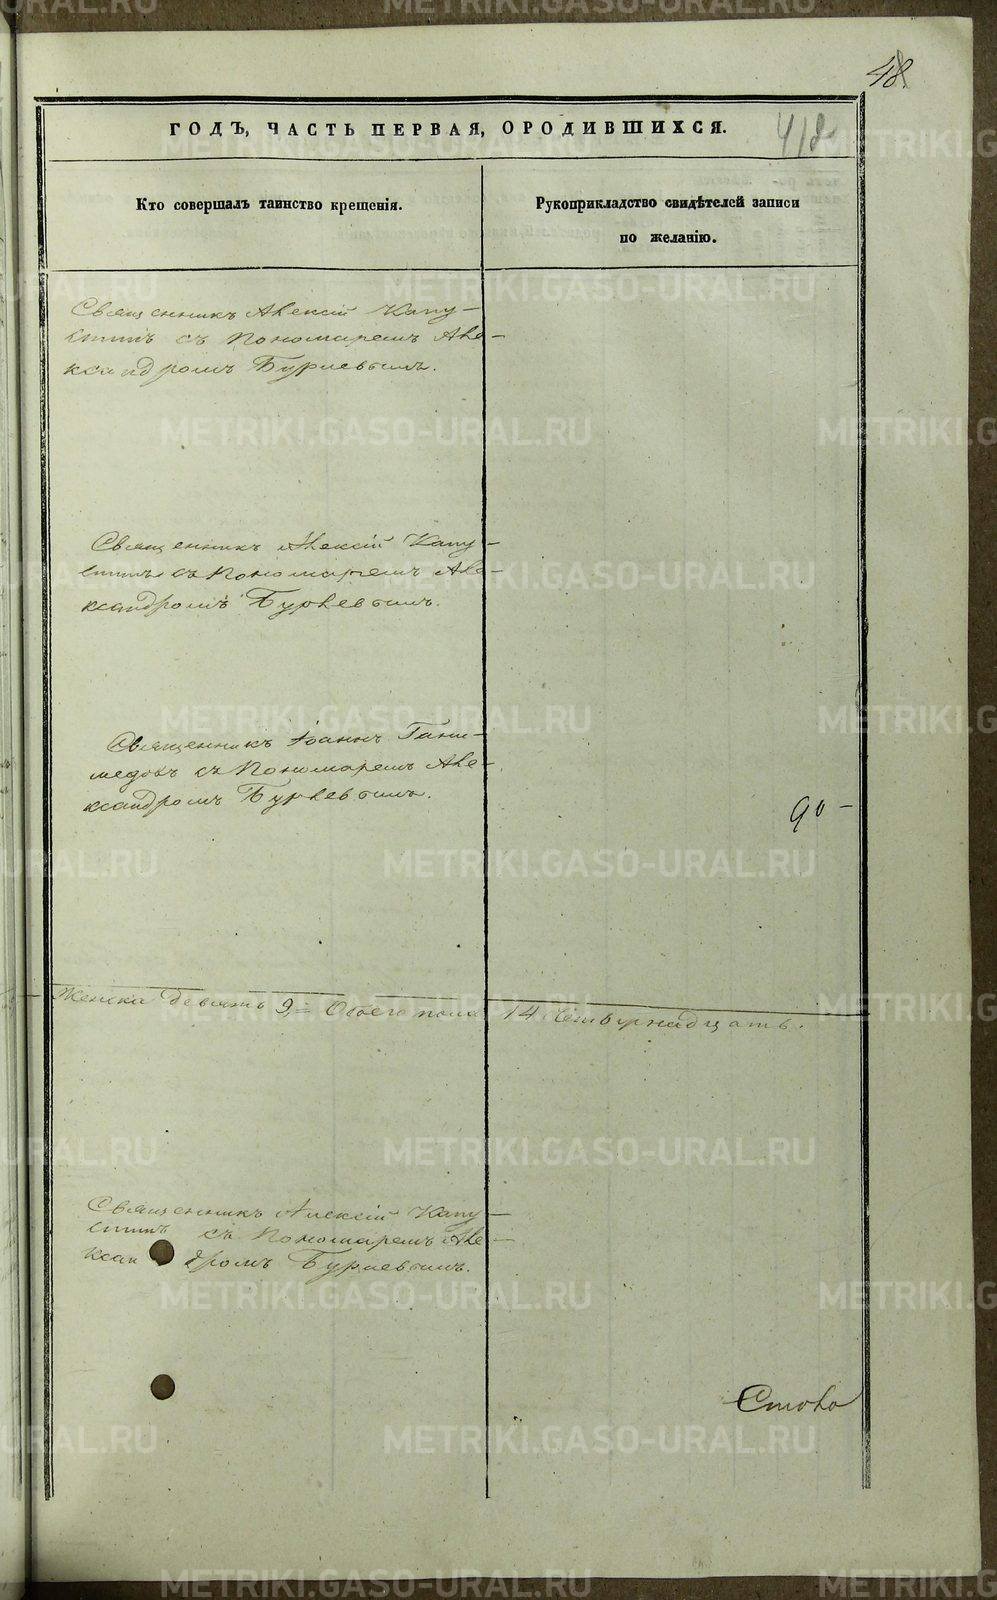 48.
ГОДЪ, ЧАСТЬ ПЕРВАЯ, ОРОДИВШИХСЯ.
418
Кто совершалъ таинство крещенія.
Рукоприкладство свидѣтелей записи
по желанію.
Священникъ Алексій Капу-
стинъ съ Пономаремъ Але-
ксандромъ Бурлевымъ.
Священникъ Алексій Капу-
стинъ съ Пономаремъ Але-
ксандромъ Бурлевымъ.
Священникъ Іоаннъ Гани-
медовъ съ Пономаремъ Але-
ксандромъ Бурлевымъ.
90-
Женска девять 9,= Обоего пола 14 Четырнадцать.
Священникъ Алексій Капу-
стинъ съ Пономаремъ Але-
ксандромъ Бурлевымъ.
METRIKI.GASO-URAL.RU